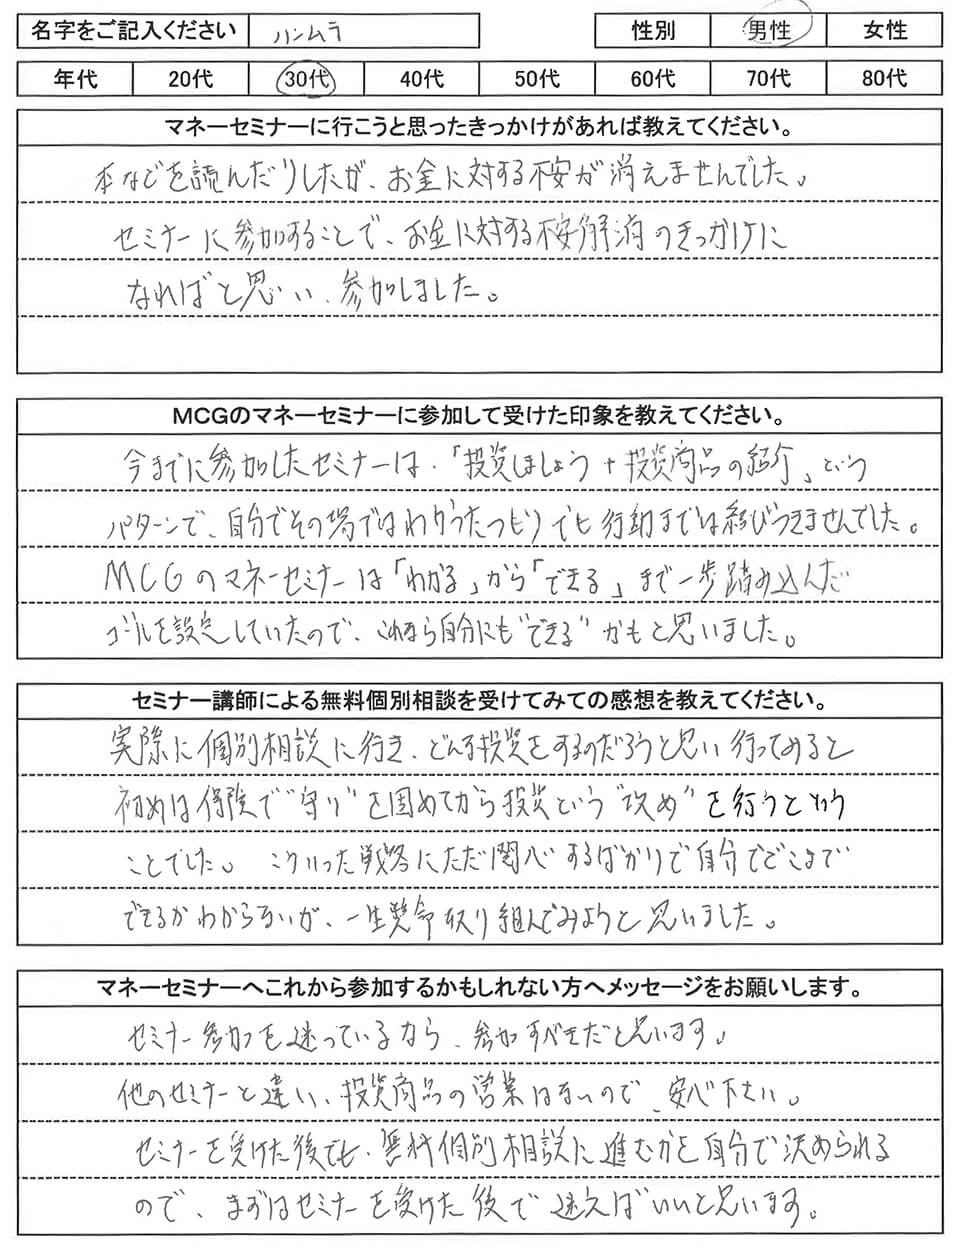 名字をご記入ください ハンムラ 性別 男性 女性
年代 20代 30代 40代 50代 60代 70代 80代
マネーセミナーに行こうと思ったきっかけがあれば教えてください。
本などを読んだりしたが、お金に対する不安が消えませんでした。
セミナーに参加することで、お金に対する不安解消のきっかけに
なればと思い、参加しました。
MCGのマネーセミナーに参加して受けた印象を教えてください。
今までに参加したセミナーは、「投資しましょう+投資商品の紹介」という
パターンで、自分でその場ではわかったつもりでも行動までは結びつきませんでした。
MCGのマネーセミナーは「わかる」から「できる」まで一歩踏み込んだ
ゴールを設定していたので、これなら自分にも"できる"かもと思いました。
セミナー講師による無料個別相談を受けてみての感想を教えてください。
実際に個別相談に行き、どんな投資をするのだろうと思い行ってみると
初めは保険で"守り"を固めてから投資という"攻め"を行うという
ことでした。こういった戦略にただ関心するばかりで自分でどこまで
できるかわからないが、一生懸命取り組んでみようと思いました。
マネーセミナーへこれから参加するかもしれない方へメッセージをお願いします。
セミナー参加を迷っているなら、参加すべきだと思います。
他のセミナーと違い、投資商品の営業はないので、安心下さい。
セミナーを受けた後でも、無料個別相談に進むかを自分で決められる
ので、まずはセミナーを受けた後で迷えばいいと思います。